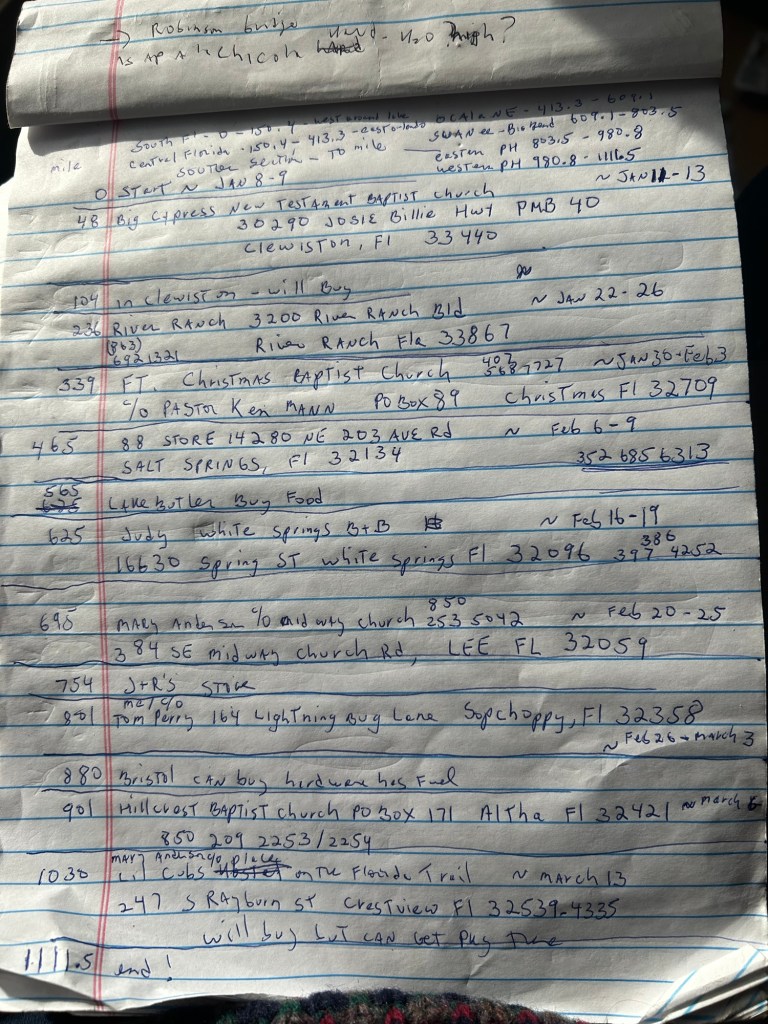 → Robinson bridge H2O high?
is APAlachicola
South Fl - 0 - 150.4 - west around lake
Central Florida - 150.4 - 413.3 - east orlando
OCALA NE - 413.3 - 609.1
SWANee - Big Bend 609.1 - 803.5
eastern PH 803.5 - 980.8
western PH 980.8 - 1111.5
mile Souther Section - TO mile
0 Start ~ JAN 8-9
48 Big Cypress New Testament BAPTIST church ~ JAN 11-13
30290 JOSIE Billie Hwy PMB 40
Clewiston, Fl 33440
104 in Clewiston - will Buy
236 River RANCH 3200 River RANCH Bld ~ JAN 22-26
(863) 6921321 River RANCH Fla 33867
339 FT. Christmas BAPTIST Church 407 568 7727 ~ JAN 30 - Feb 3
c/o PASTOR Ken MANN PO BOX 89 Christmas Fl 32709
465 88 STORE 14280 NE 203 AVE Rd ~ Feb 6-9
SALT SPRINGS, Fl 32134 352 685 6313
565 LAKE BUTLER Buy Food
625 Judy White Springs B+B ~ Feb 16-19
16630 Spring ST White Springs Fl. 32096 386 397 4252
695 MARY Anderson c/o midway church 850 253 5042 ~ Feb 20-25
384 SE midway church Rd, LEE FL 32059
754 J+R's STORE
801 Tom Perry 164 Lightning Bug Lane Sopchoppy, Fl 32358
~ Feb 26 - March 3
880 Bristol CAN buy hardware has Fuel
901 Hillcrest BAPTIST church PO BOX 171 Altha Fl 32421 ~ March 6
850 209 2253/2254
1030 Mary Anderson c/o place
Lil Cubs on the Florida Trail ~ March 13
247 S RAyburn ST Crestview Fl 32539-4335
will buy but CAN get pkg
1111.5 end!